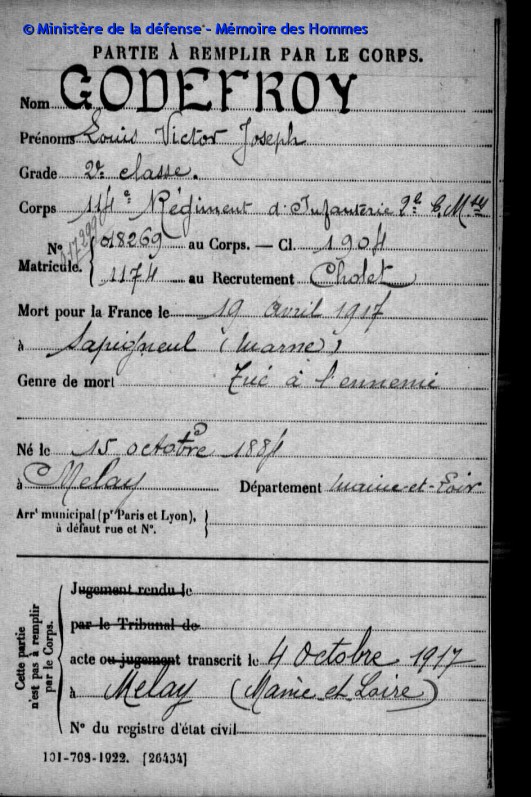 © Ministère de la défense - Mémoire des Hommes
PARTIE À REMPLIR PAR LE CORPS.
Nom GODEFROY
Prénoms Louis Victor Joseph
Grade 2e classe.
Corps 114e Régiment d'Infanterie 2e C. Mses
N° 018269 au Corps. — Cl. 1904
Matricule. 1174 au Recrutement Cholet
Mort pour la France le 19 avril 1917
à Sapigneul (Marne)
Genre de mort Tué à l'ennemi
Né le 15 octobre 1884
à Melay Département Maine-et-Loir
Arrt municipal (pr Paris et Lyon),
à défaut rue et N°.
Cette partie
n'est pas à remplir
par le Corps.
Jugement rendu le
par le Tribunal de
acte ou jugement transcrit le 4 octobre 1917
à Melay (Maine et Loire)
N° du registre d'état civil
101-708-1922. [26434]